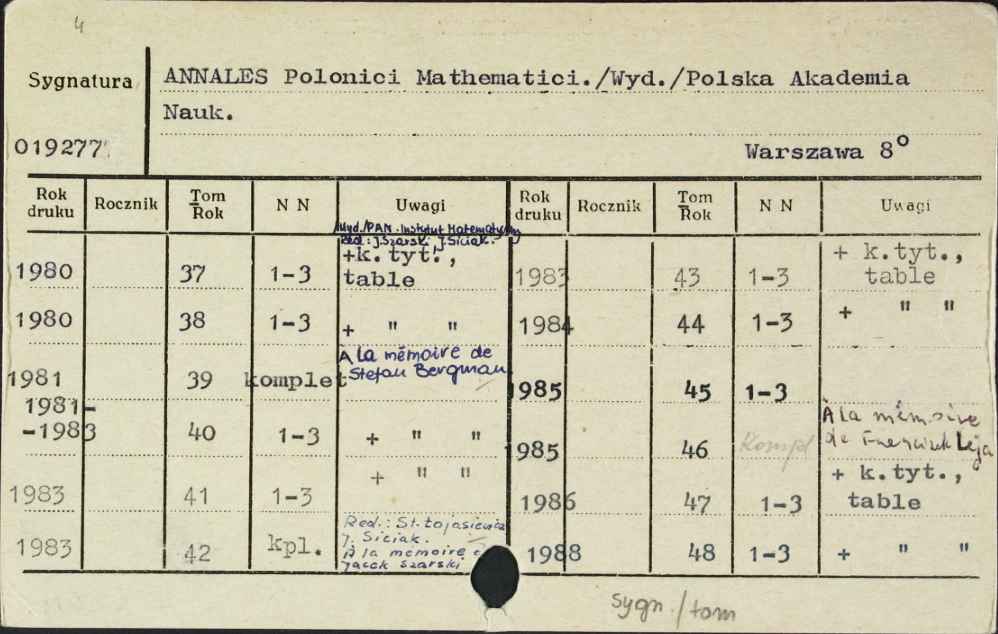 4
Sygnatura
019277
ANNALES Polonici Mathematici./Wyd./Polska Akademia
Nauk.
Warszawa 8°
Rok druku Rocznik Tom/Rok N N Uwagi Rok druku Rocznik Tom/Rok N N Uwagi
Wyd./PAN. Instytut Matematyczny
Red: J. Szarski J. Siciak.
1980 37 1-3 +k.tyt., table
1980 38 1-3 + " "
1981 39 komplet À la mémoire de Stefan Bergman
1981-
-1983 40 1-3 + " "
1983 41 1-3 + " "
1983 42 kpl. Red.: St. Łojasiewicz
J. Siciak.
À la mémoire
Jacek Szarski
1983 43 1-3 + k.tyt., table
1984 44 1-3 + " "
1985 45 1-3
1985 46 Kompl À la mémoire de Franciszek Leja
1986 47 1-3 + k.tyt., table
1988 48 1-3 + " "
Sygn./tom